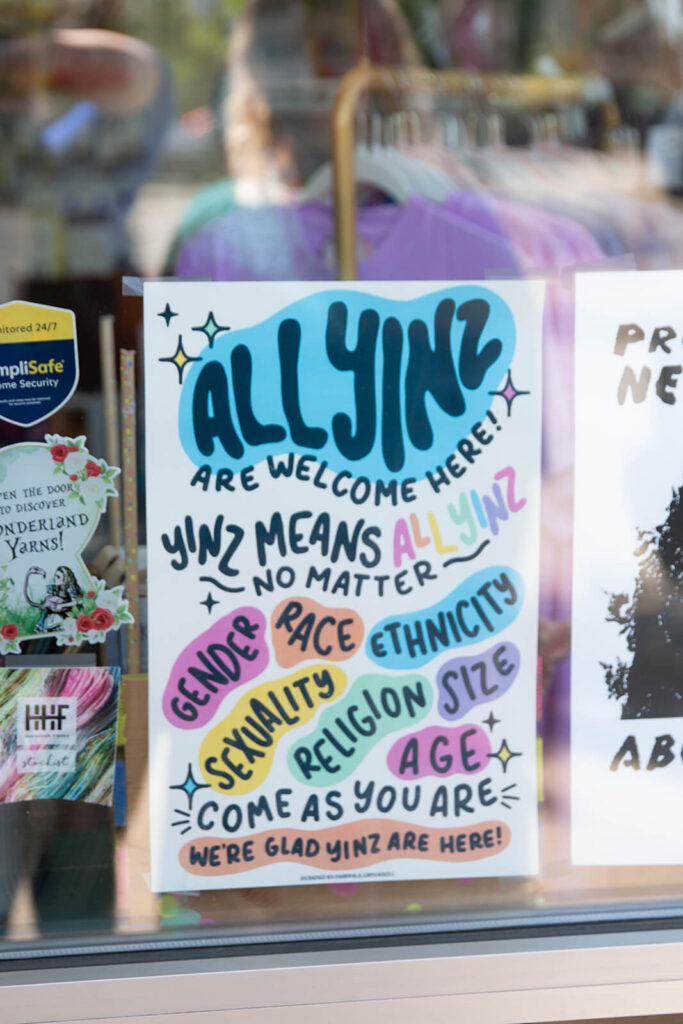 ALL YINZ
ARE WELCOME HERE!
YINZ MEANS ALL YINZ
NO MATTER
GENDER RACE ETHNICITY
SEXUALITY RELIGION SIZE
AGE
COME AS YOU ARE
WE'RE GLAD YINZ ARE HERE!
nitored 24/7
mpliSafe
ome Security
PEN THE DOOR
TO DISCOVER
ONDERLAND
YARNS!
HHF
stockist
PR
NE
AB